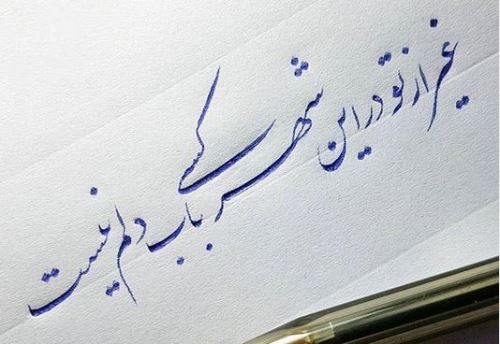 غیر از تو در این شهر کسی باب دلم نیست